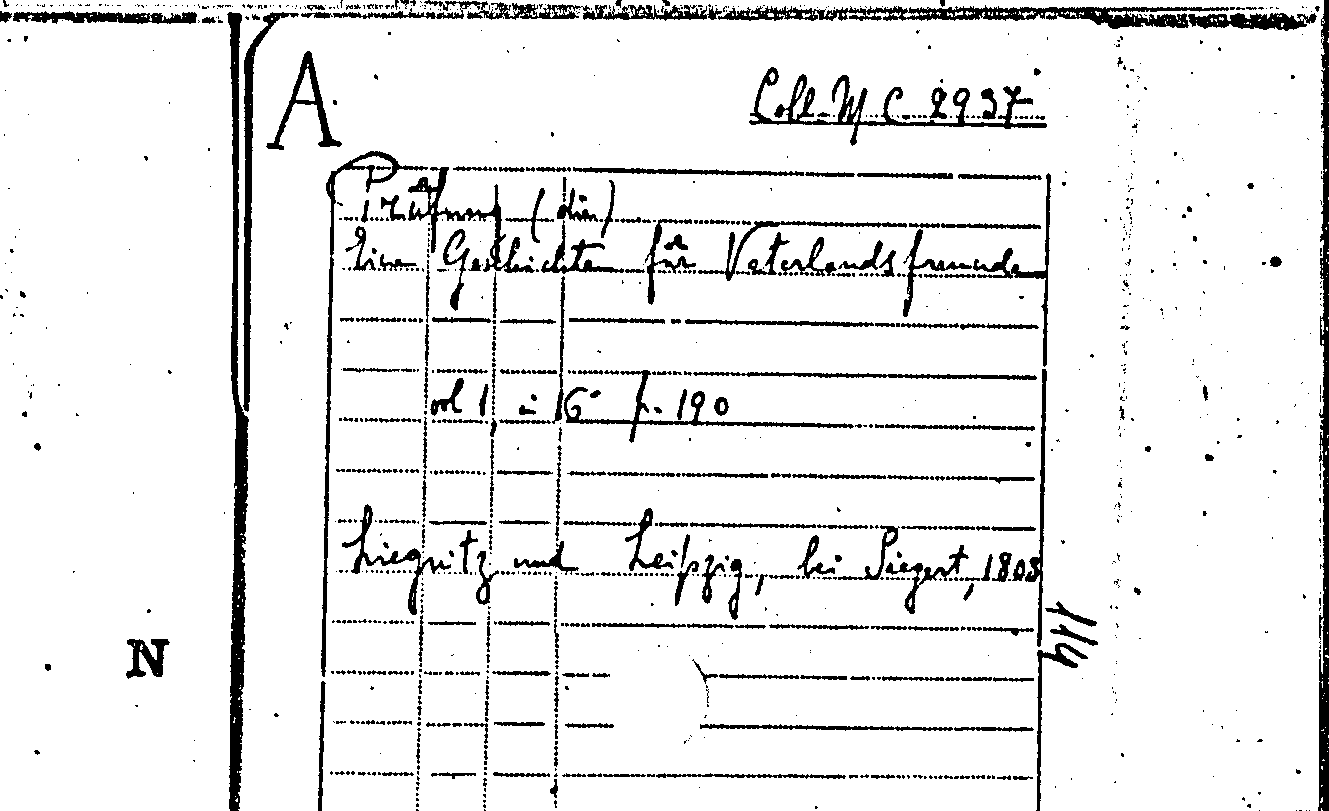 A
Coll. M C. 2937
Prüfung (die)
Eine Geschichte für Vaterlandsfreunde
vol 1 in 16° p. 190
Liegnitz und Leipzig, bei Siegert, 1808
114
N